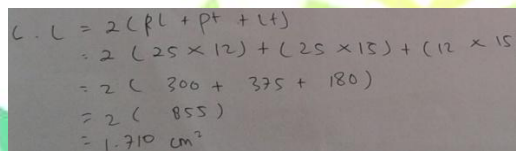 L.L = 2 (pl + pt + lt)
= 2 (25 × 12) + (25 × 15) + (12 × 15
= 2 ( 300 + 375 + 180)
= 2 ( 855)
= 1.710 cm²